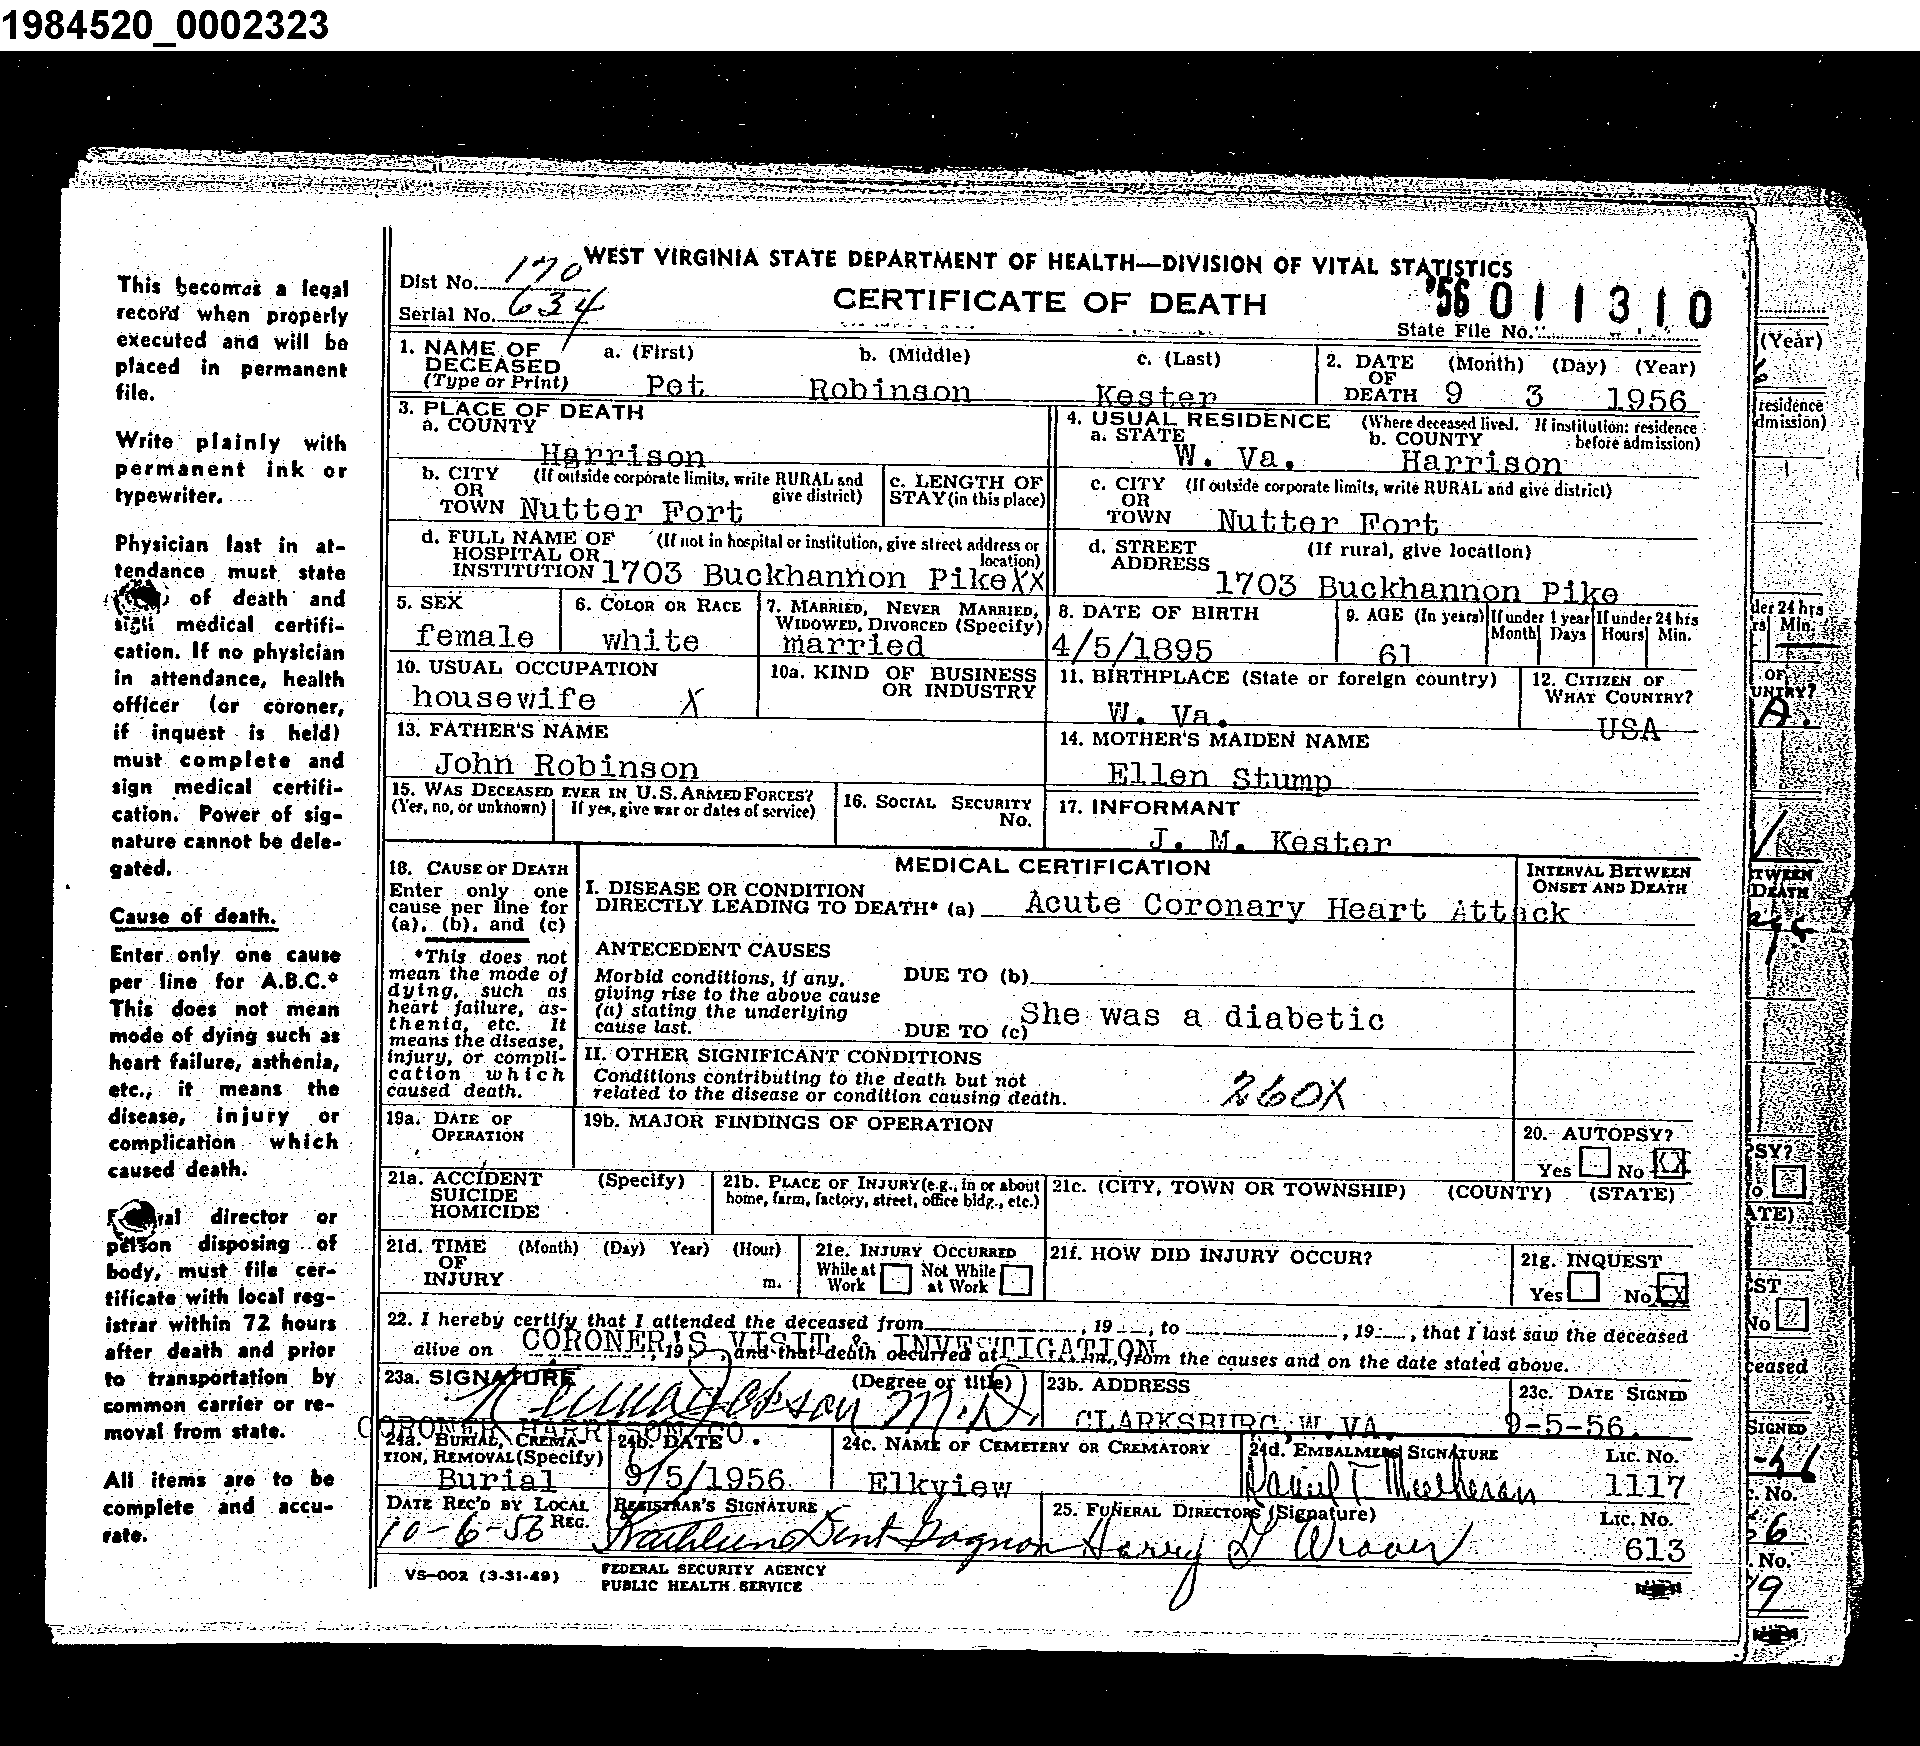 1984520_0002323
This becomes a legal
record when properly
executed and will be
placed in permanent
file.
Write plainly with
permanent ink or
typewriter.
Physician last in at-
tendance must state
of death and
sign medical certifi-
cation. If no physician
in attendance, health
officer (or coroner,
if inquest is held)
must complete and
sign medical certifi-
cation. Power of sig-
nature cannot be dele-
gated.
Cause of death.
Enter only one cause
per line for A.B.C.*
This does not mean
mode of dying such as
heart failure, asthenia,
etc., it means the
disease, injury or
complication which
caused death.
director or
person disposing of
body, must file cer-
tificate with local reg-
istrar within 72 hours
after death and prior
to transportation by
common carrier or re-
moval from state.
All items are to be
complete and accu-
rate.
WEST VIRGINIA STATE DEPARTMENT OF HEALTH—DIVISION OF VITAL STATISTICS
Dist No. 170
Serial No. 634
CERTIFICATE OF DEATH
'56 011310
State File No.
1. NAME OF DECEASED (Type or Print) a. (First) b. (Middle) c. (Last)
Pet Robinson Kester
2. DATE OF DEATH (Month) (Day) (Year)
9 3 1956
3. PLACE OF DEATH
a. COUNTY
Harrison
4. USUAL RESIDENCE (Where deceased lived. If institution: residence before admission)
a. STATE b. COUNTY
W. Va. Harrison
b. CITY OR TOWN (If outside corporate limits, write RURAL and give district)
Nutter Fort
c. LENGTH OF STAY (in this place)
c. CITY OR TOWN (If outside corporate limits, write RURAL and give district)
Nutter Fort
d. FULL NAME OF HOSPITAL OR INSTITUTION (If not in hospital or institution, give street address or location)
1703 Buckhannon Pike XX
d. STREET ADDRESS (If rural, give location)
1703 Buckhannon Pike
5. SEX
female
6. COLOR OR RACE
white
7. MARRIED, NEVER MARRIED, WIDOWED, DIVORCED (Specify)
married
8. DATE OF BIRTH
4/5/1895
9. AGE (In years)
61
If under 1 year Month Days
If under 24 hrs Hours Min.
10. USUAL OCCUPATION
housewife X
10a. KIND OF BUSINESS OR INDUSTRY
11. BIRTHPLACE (State or foreign country)
W. Va.
12. CITIZEN OF WHAT COUNTRY?
USA
13. FATHER'S NAME
John Robinson
14. MOTHER'S MAIDEN NAME
Ellen Stump
15. WAS DECEASED EVER IN U.S. ARMED FORCES?
(Yes, no, or unknown) If yes, give war or dates of service)
16. SOCIAL SECURITY No.
17. INFORMANT
J. M. Kester
18. CAUSE OF DEATH
Enter only one
cause per line for
(a), (b), and (c)
*This does not
mean the mode of
dying, such as
heart failure, as-
thenia, etc. It
means the disease,
injury, or compli-
cation which
caused death.
MEDICAL CERTIFICATION
INTERVAL BETWEEN ONSET AND DEATH
I. DISEASE OR CONDITION
DIRECTLY LEADING TO DEATH* (a) Acute Coronary Heart Attack
ANTECEDENT CAUSES
Morbid conditions, if any,
giving rise to the above cause
(a) stating the underlying
cause last.
DUE TO (b)
DUE TO (c) She was a diabetic
II. OTHER SIGNIFICANT CONDITIONS
Conditions contributing to the death but not
related to the disease or condition causing death.
260X
19a. DATE OF OPERATION
19b. MAJOR FINDINGS OF OPERATION
20. AUTOPSY?
Yes No XX
21a. ACCIDENT SUICIDE HOMICIDE (Specify)
21b. PLACE OF INJURY (e.g., in or about home, farm, factory, street, office bldg., etc.)
21c. (CITY, TOWN OR TOWNSHIP) (COUNTY) (STATE)
21d. TIME OF INJURY (Month) (Day) Year) (Hour) m.
21e. INJURY OCCURRED
While at Work Not While at Work
21f. HOW DID INJURY OCCUR?
21g. INQUEST
Yes No XX
22. I hereby certify that I attended the deceased from , 19 , to , 19 , that I last saw the deceased
alive on , 19 , and that death occurred at m., from the causes and on the date stated above.
CORONER'S VISIT & INVESTIGATION
23a. SIGNATURE (Degree or title)
Jackson M.D.
CORONER HARRISON CO.
23b. ADDRESS
CLARKSBURG, W. VA.
23c. DATE SIGNED
9-5-56.
24a. BURIAL, CREMATION, REMOVAL (Specify)
Burial
24b. DATE
9/5/1956
24c. NAME OF CEMETERY OR CREMATORY
Elkview
24d. EMBALMERS SIGNATURE
Lic. No.
1117
DATE REC'D BY LOCAL REG.
10-6-56
REGISTRAR'S SIGNATURE
Kathleen Dent Gagnon
25. FUNERAL DIRECTORS (Signature)
Harry G Weaver
Lic. No.
613
VS—002 (3-31-49)
FEDERAL SECURITY AGENCY
PUBLIC HEALTH SERVICE